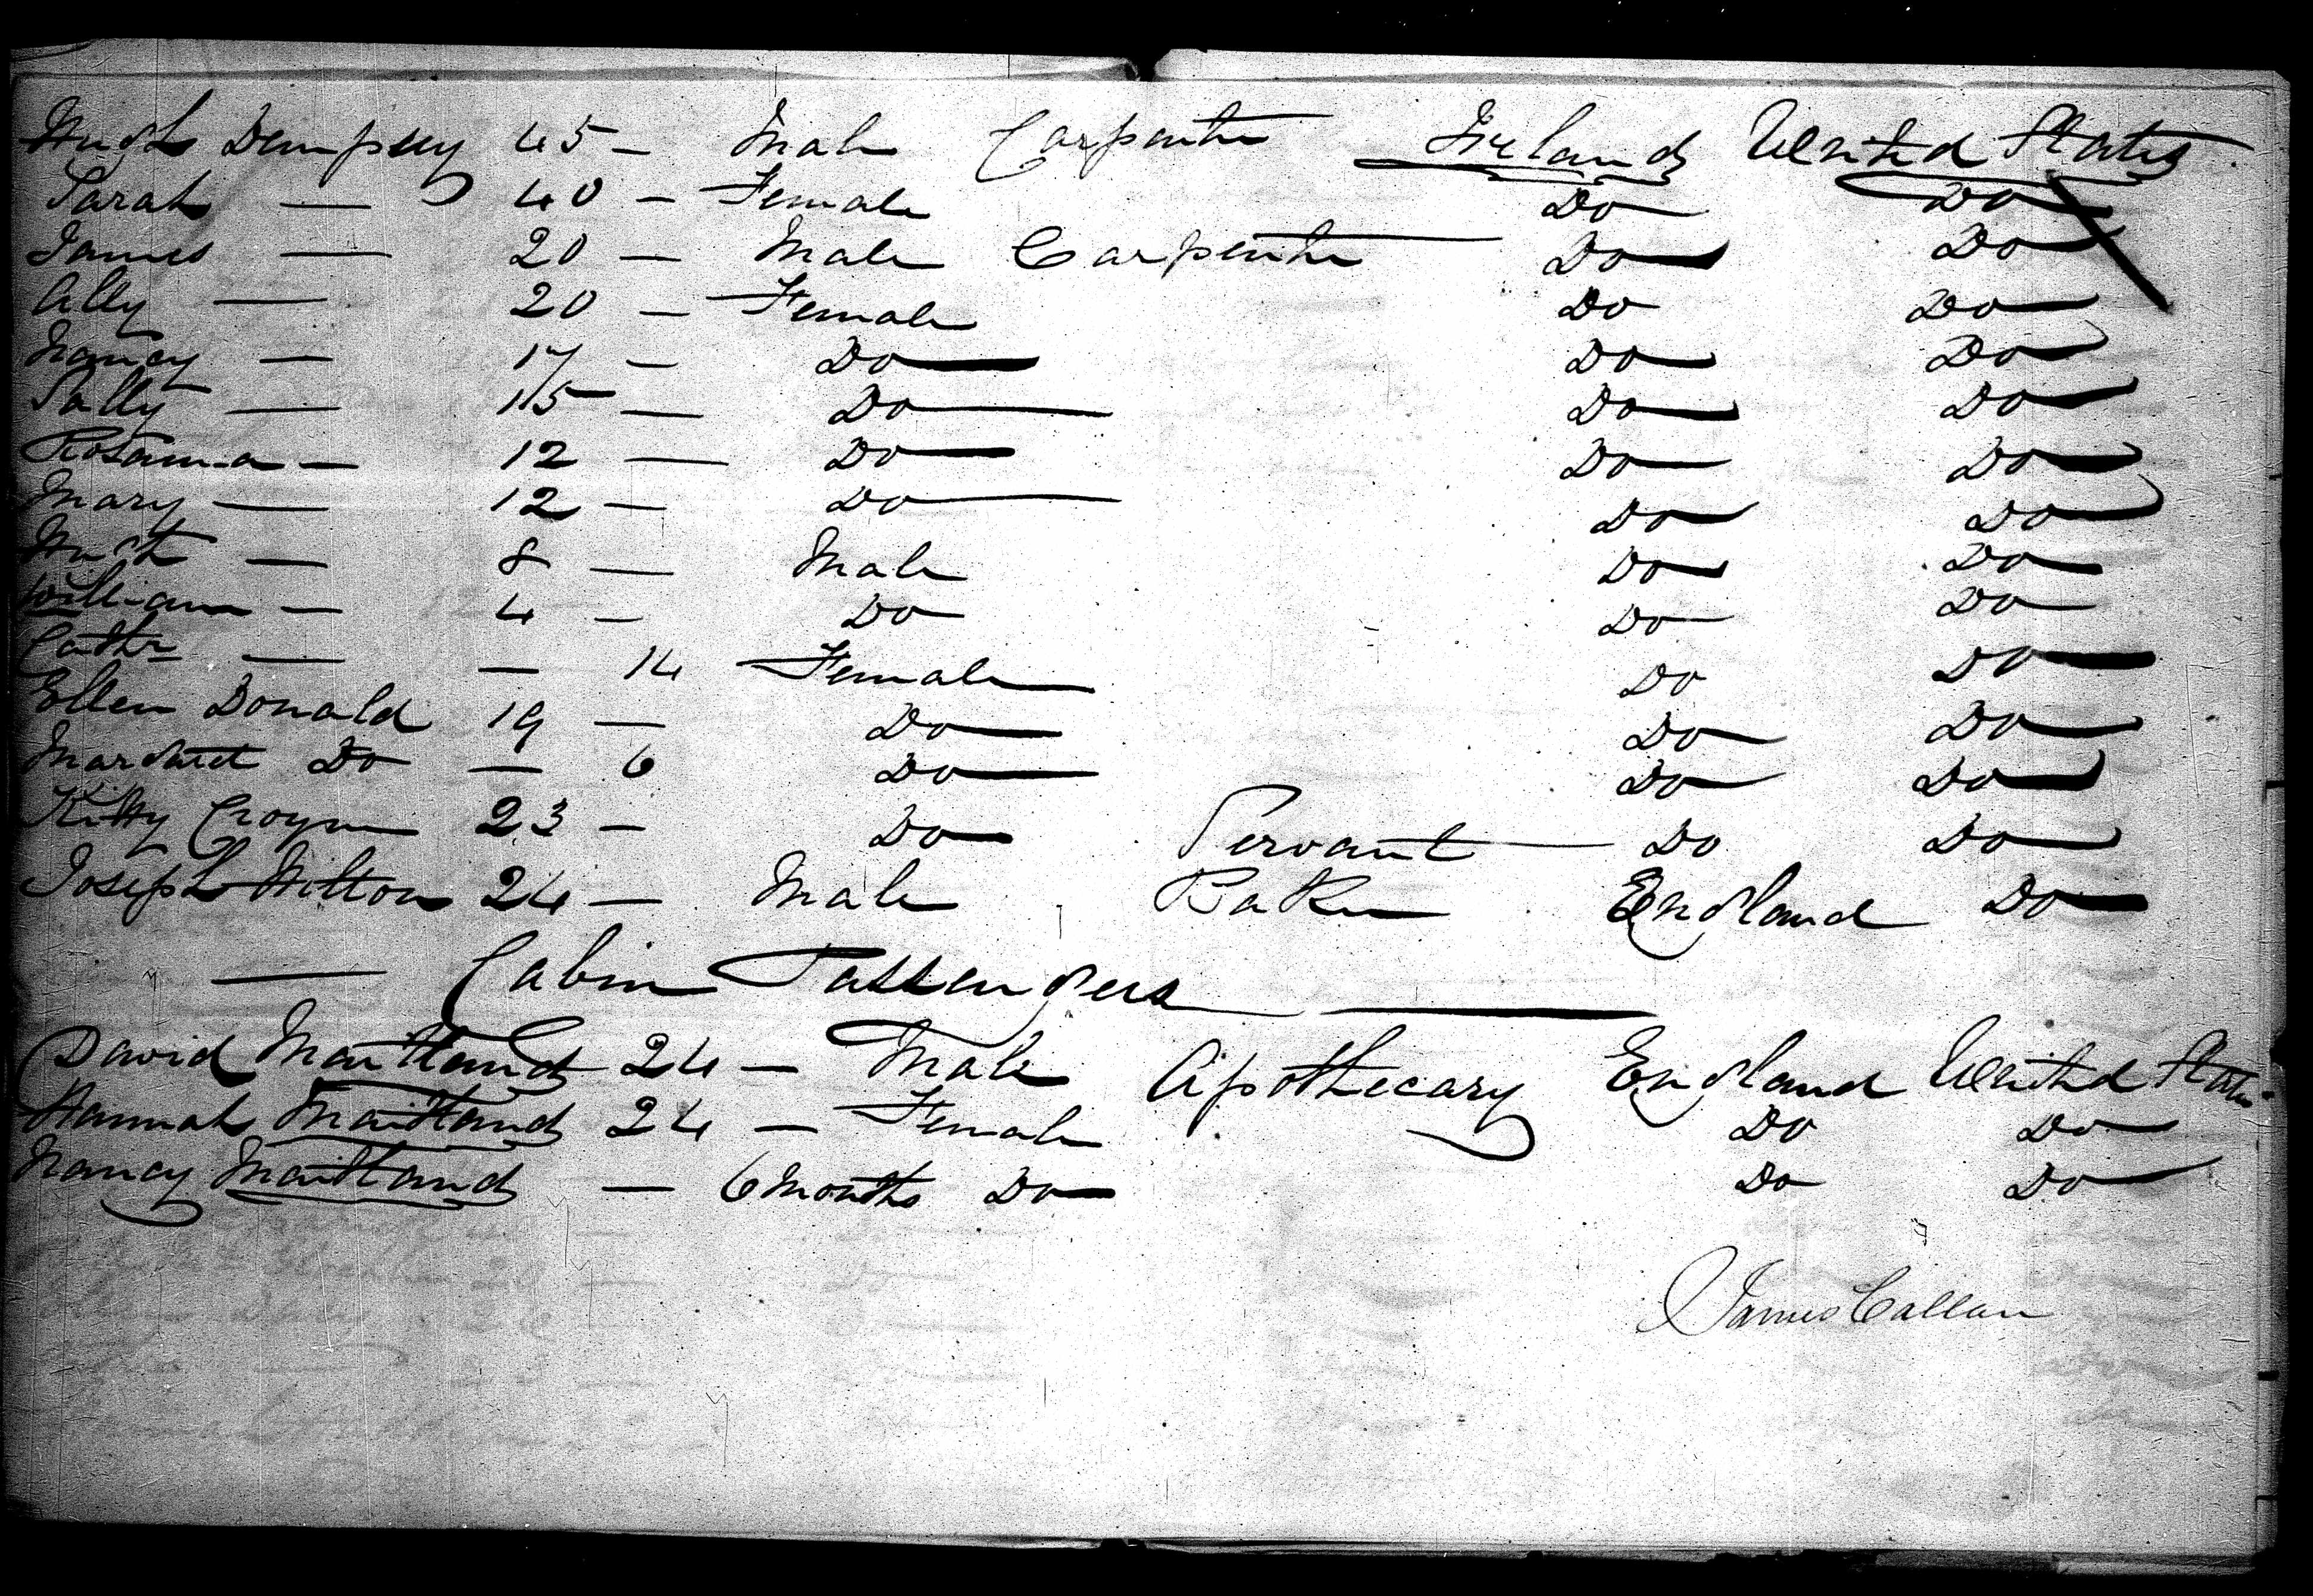 Hugh Dempsey 45 - Male Carpenter Ireland United States
Sarah — 40 - Female Do Do
James — 20 - Male Carpenter Do Do
Ally — 20 - Female Do Do
Nancy — 17 - Do Do Do
Sally — 15 - Do Do Do
Rosanna — 12 - Do Do Do
Mary — 12 - Do Do Do
Hugh — 8 - Male Do Do
William — 4 - Do Do Do
Cathr — - 14 Female Do Do
Ellen Donald 19 - Do Do Do
Margaret Do - 6 Do Do Do
Kitty 23 - Do Servant Do Do
Joseph Hilton 24 - Male Baker England Do
— Cabin Passengers —
David Maitland 24 - Male Apothecary England United States
Hannah Maitland 24 - Female Do Do
Nancy Maitland - 6 Months Do Do Do
James Callan